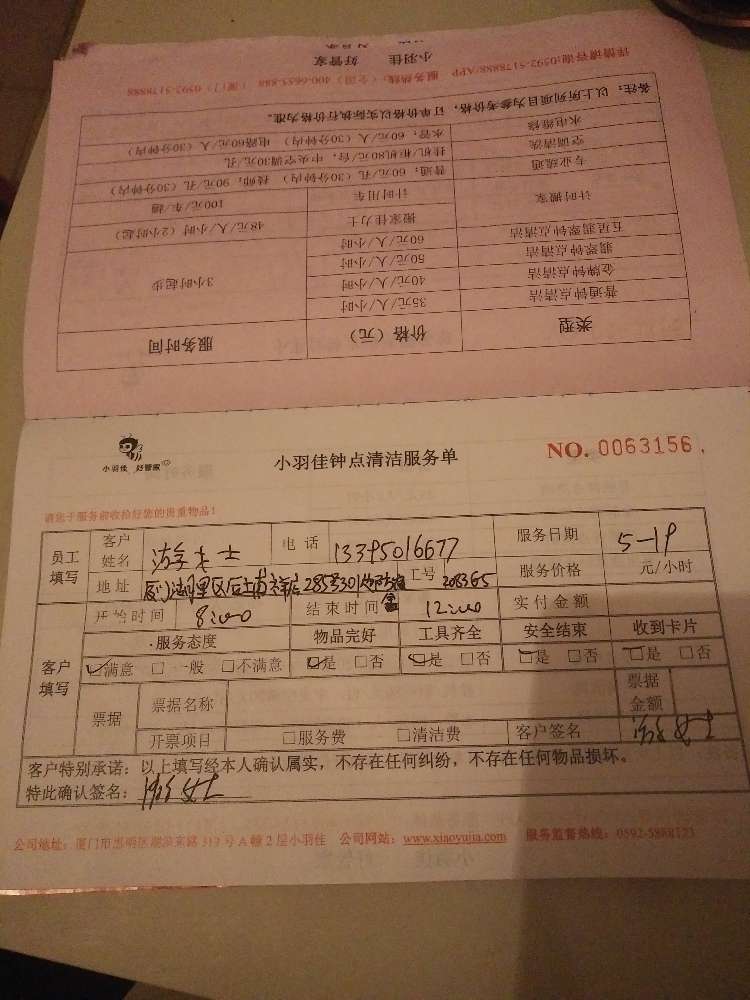 类型 价格（元） 服务时间
普通钟点清洁 35元/人/小时 3小时起步
金牌钟点清洁 40元/人/小时
翡翠钟点清洁 50元/人/小时
五星翡翠钟点清洁 60元/人/小时
计时搬家 搬家佳力士 48元/人/小时（2小时起）
计时用车 100元/车/趟
专业疏通 普通，60元/孔（30分钟内） 技师，90元/孔（30分钟内）
空调清洗 挂机/柜机80元/台，中央空调30元/孔
水电维修 水管，60元/人（30分钟内） 电路60元/人（30分钟内）
备注：以上所列项目为参考价格，订单价格以实际执行价格为准。
详情请咨询:0592-5178888/APP 服务热线:（全国）400-6655-888（厦门）0592-5178888
小羽佳 好管家
小羽佳 好管家
小羽佳钟点清洁服务单
NO. 0063156
请您于服务前收拾好您的贵重物品！
员工填写 客户姓名 游女士 电话 13395016677 服务日期 5-19
地址 工号 208365 服务价格 元/小时
开始时间 8:00 结束时间 12:00 实付金额
客户填写 服务态度 物品完好 工具齐全 安全结束 收到卡片
☑满意 □一般 □不满意 ☑是 □否 ☑是 □否 ☑是 □否 ☑是 □否
票据 票据名称 票据金额
开票项目 □服务费 □清洁费 客户签名 游女士
客户特别承诺：以上填写经本人确认属实，不存在任何纠纷，不存在任何物品损坏。
特此确认签名： 游女士
公司地址：厦门市思明区湖滨东路319号A幢2层小羽佳 公司网站：www.xiaoyujia.com 服务监督热线：0592-5888123